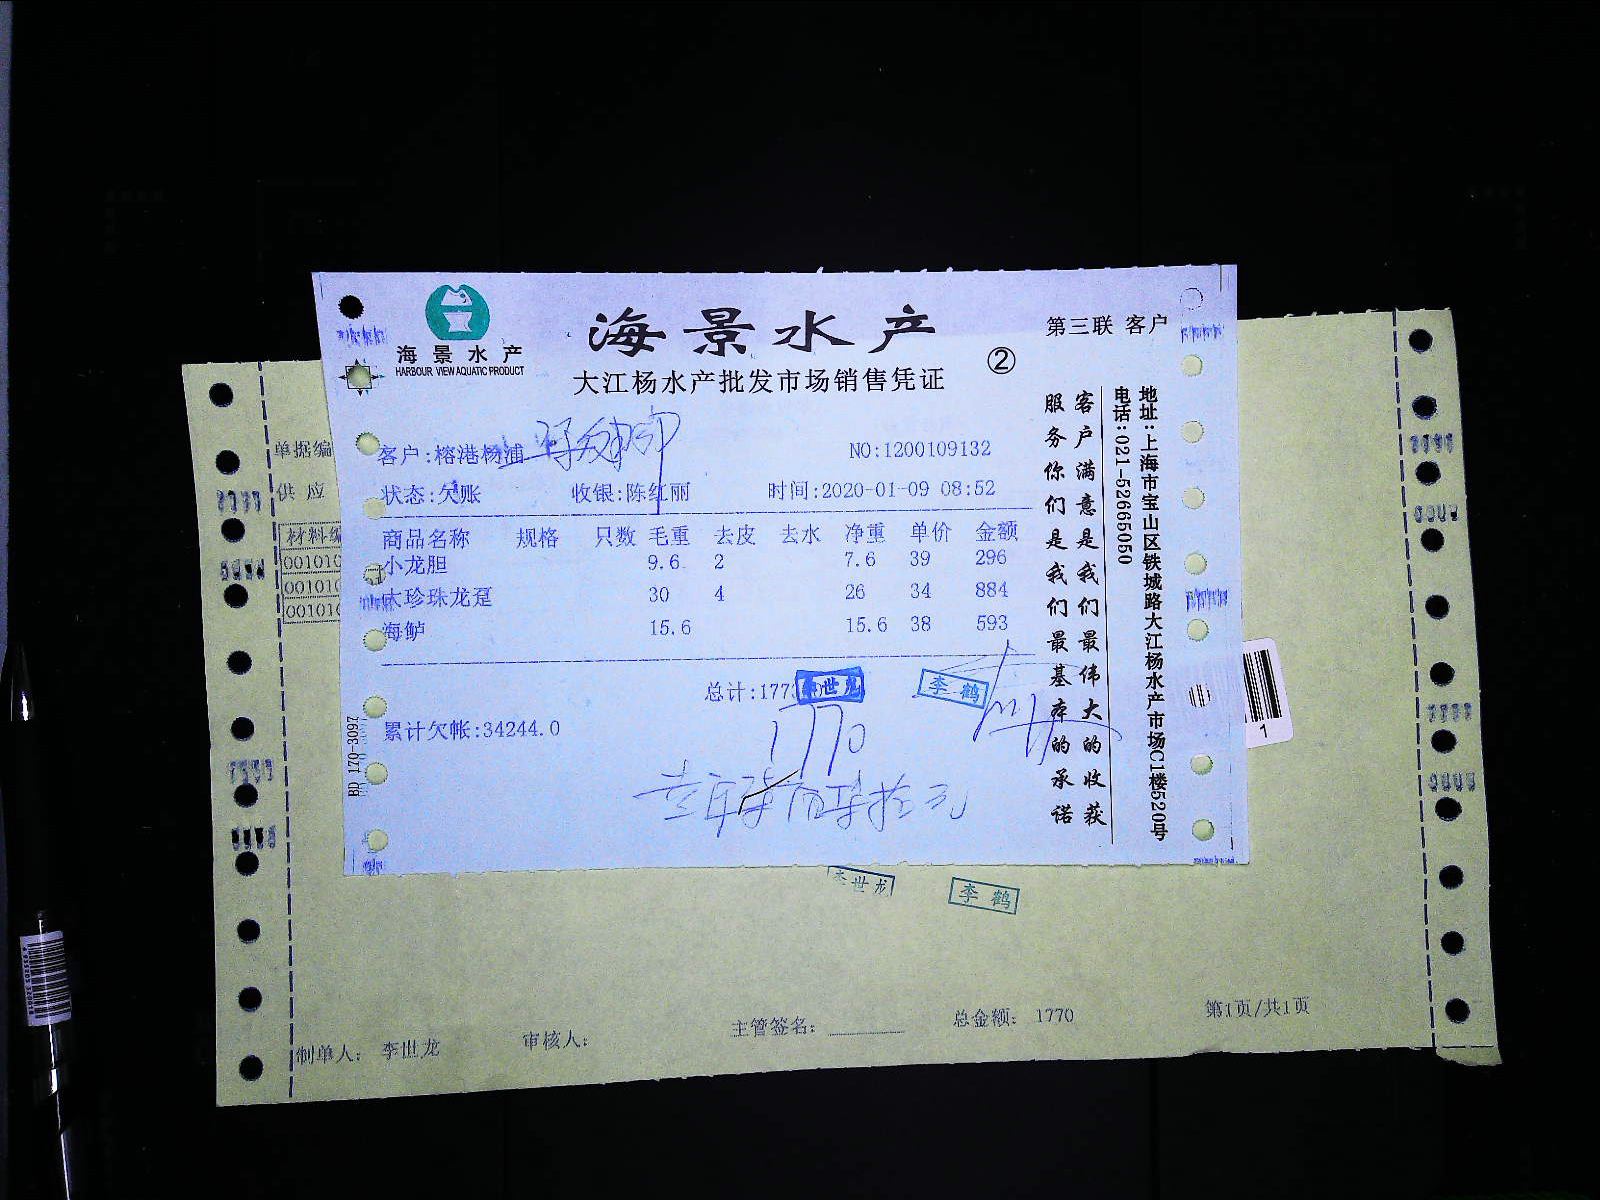 海景水产
HARBOUR VIEW AQUATIC PRODUCT
海景水产
大江杨水产批发市场销售凭证
②
第三联 客户
客户:榕港杨浦
NO:1200109132
状态:欠账 收银:陈红丽 时间:2020-01-09 08:52
商品名称 规格 只数 毛重 去皮 去水 净重 单价 金额
小龙胆 9.6 2 7.6 39 296
大珍珠龙趸 30 4 26 34 884
海鲈 15.6 15.6 38 593
总计:177
李世龙
李鹤
累计欠帐:34244.0
1770
壹仟柒佰柒拾元
客户满意是我们最伟大的收获
服务你们是我们最基本的承诺
地址:上海市宝山区铁城路大江杨水产市场C1楼520号
电话:021-52665050
BD 170-3097
1
单据编
供应
材料编
001010
001010
001010
李世龙
李鹤
制单人: 李世龙 审核人: 主管签名: 总金额: 1770 第1页/共1页